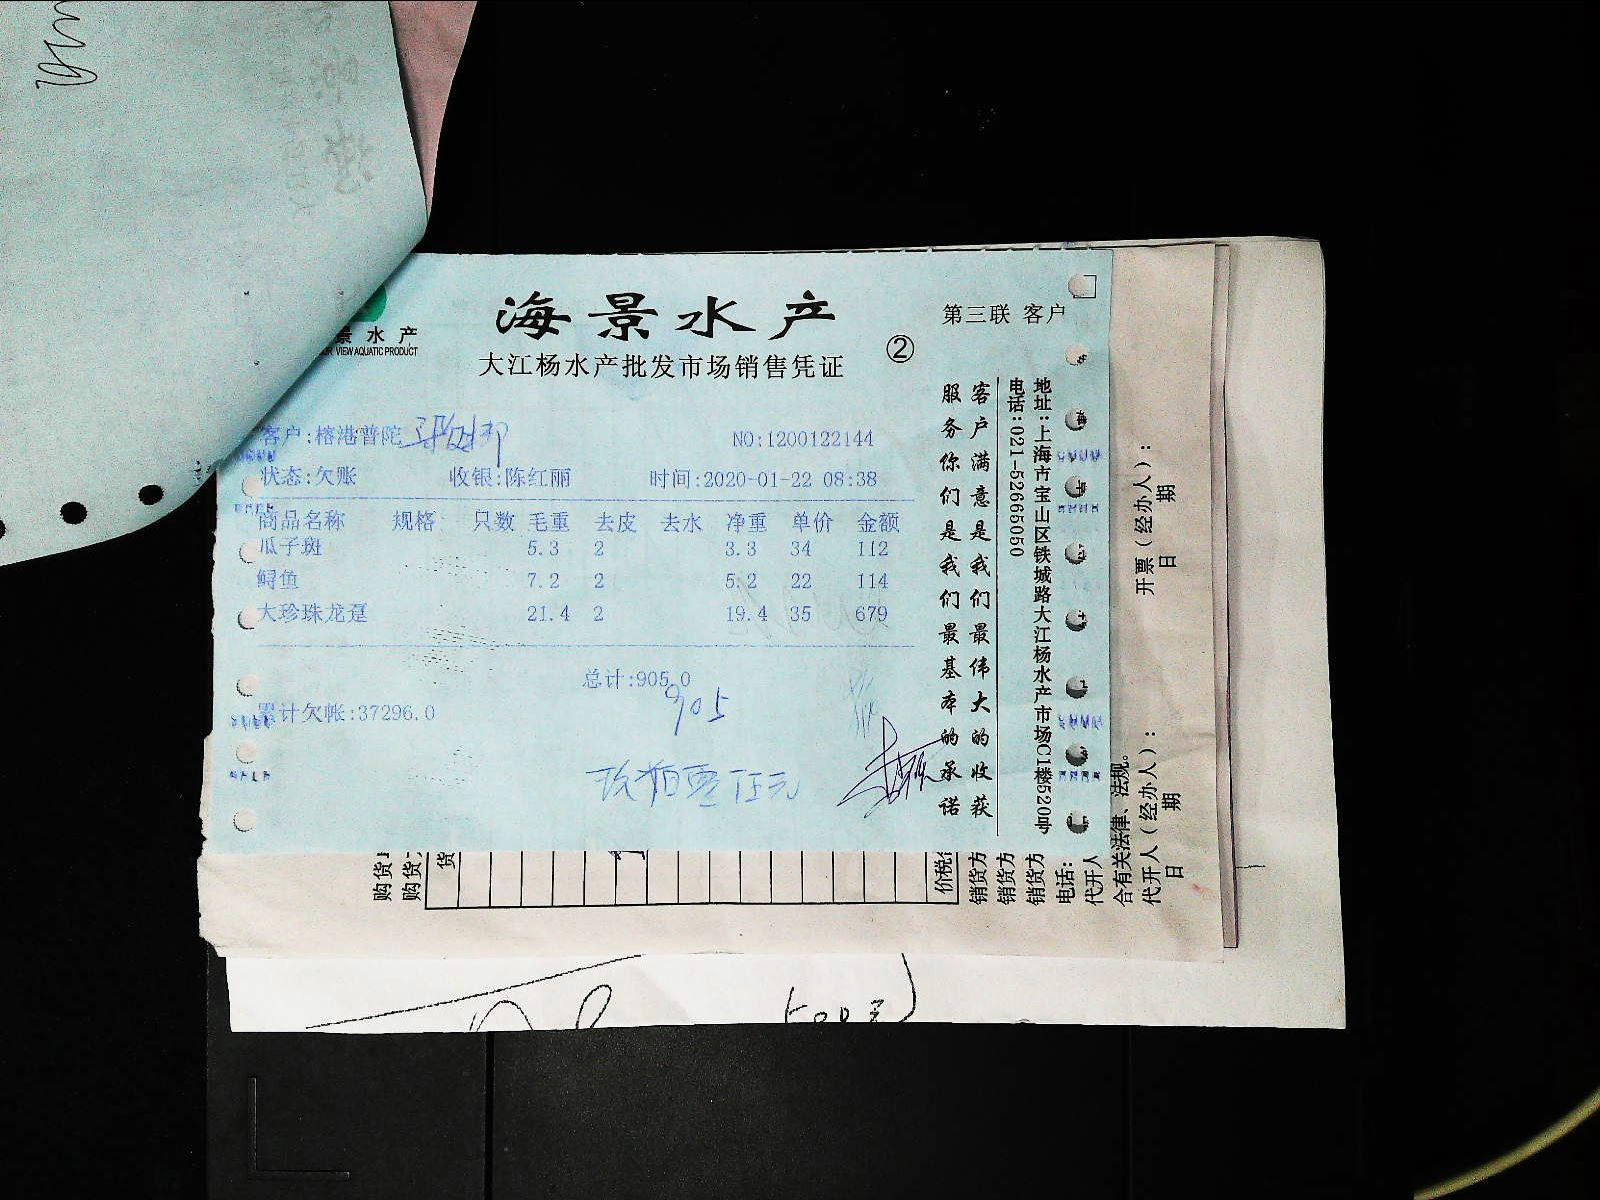 海景水产
第三联 客户
景水产
VIEW AQUATIC PRODUCT
大江杨水产批发市场销售凭证
②
客户:榕港普陀
NO:1200122144
状态:欠账 收银:陈红丽 时间:2020-01-22 08:38
商品名称 规格 只数 毛重 去皮 去水 净重 单价 金额
瓜子斑 5.3 2 3.3 34 112
鲟鱼 7.2 2 5.2 22 114
大珍珠龙趸 21.4 2 19.4 35 679
总计:905.0
905
累计欠帐:37296.0
玖佰零伍元
客户满意是我们最伟大的收获
服务你们是我们最基本的承诺
地址:上海市宝山区铁城路大江杨水产市场C1楼520号
电话:021-52665050
开票(经办人):
日期
代开人(经办人):
日期
合有关法律、法规。
购货
购货
货
价税
销货方
销货方
销货方
电话:
代开人